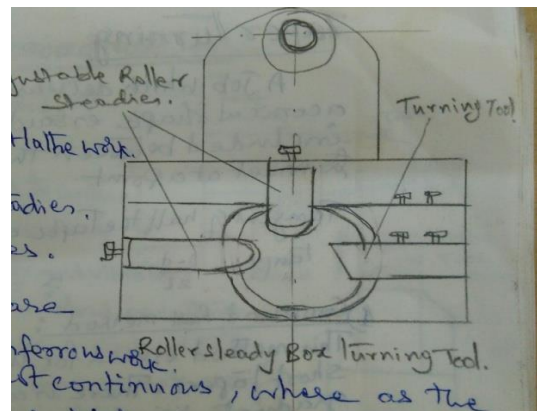 justable Roller
steadies.
Turning Tool
lathe work.
adies.
es.
are
nferrous work.
Roller steady Box Turning Tool.
st continuous, where as the